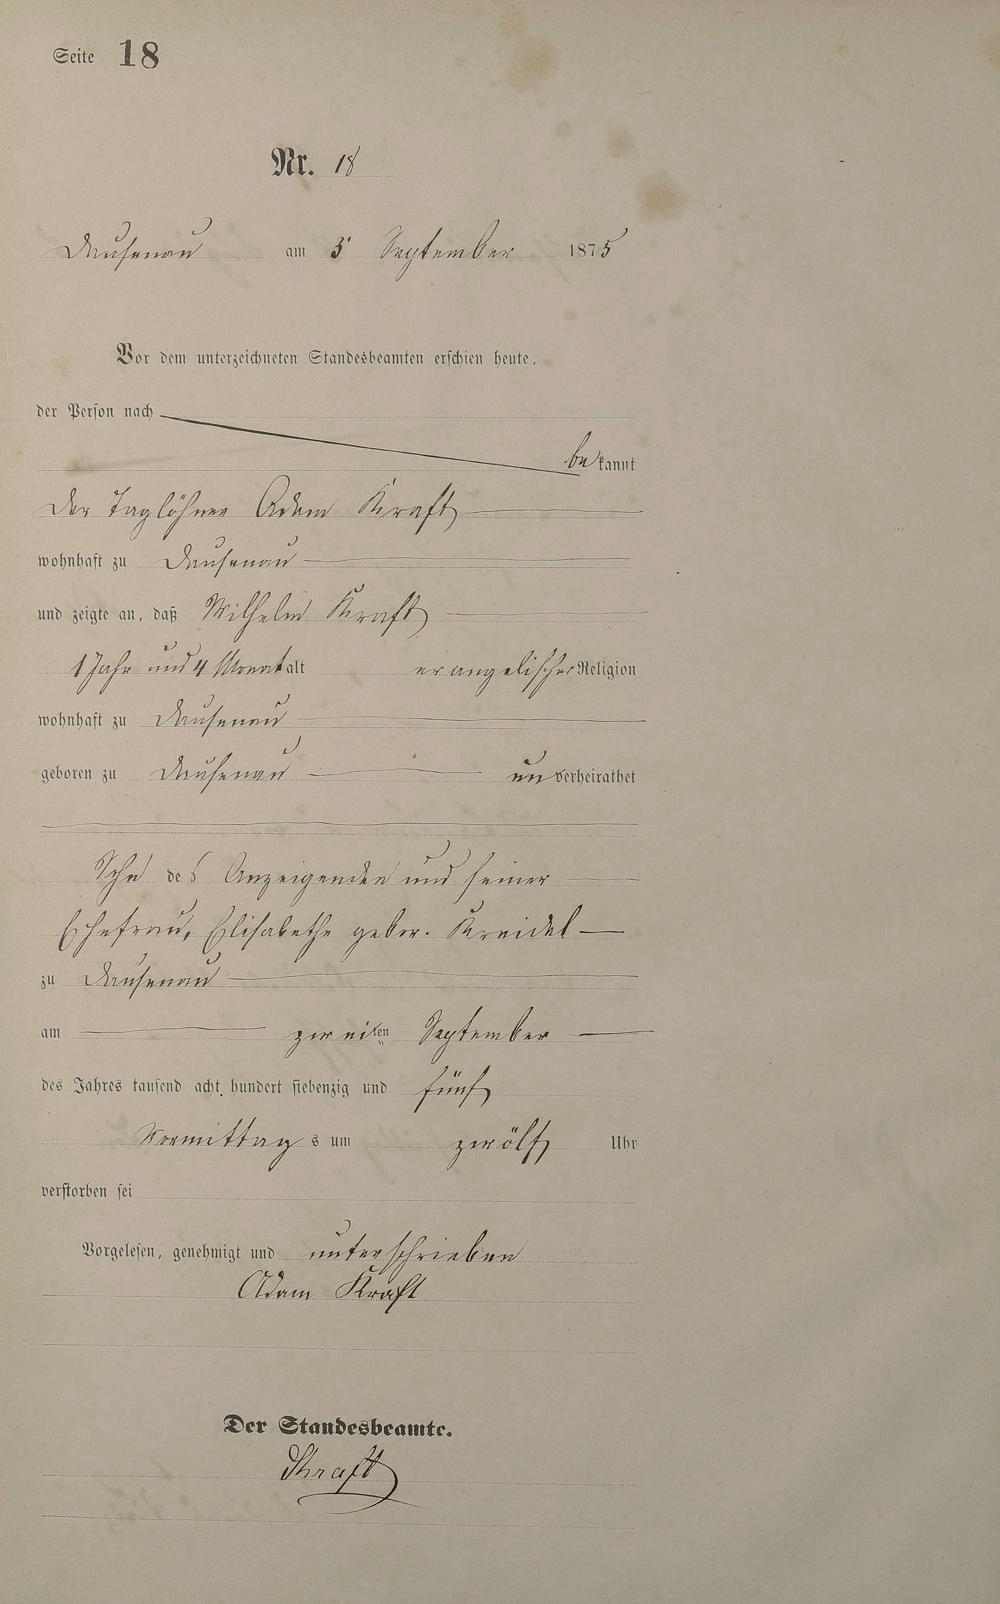 Seite 18
Nr. 18
Dausenau am 3 September 1875
Vor dem unterzeichneten Standesbeamten erschien heute,
der Person nach
bekannt
der Taglöhner Adam Kraft
wohnhaft zu Dausenau
und zeigte an, daß Wilhelm Kraft
1 Jahr und 4 Monat alt evangelischer Religion
wohnhaft zu Dausenau
geboren zu Dausenau unverheirathet
Sohn des Anzeigenden und seiner
Ehefrau, Elisabethe gebor. Kreidel
zu Dausenau
am zweiten September
des Jahres tausend acht hundert siebenzig und fünf
Vormittags um zwölf Uhr
verstorben sei
Vorgelesen, genehmigt und unterschrieben
Adam Kraft
Der Standesbeamte.
Kraft